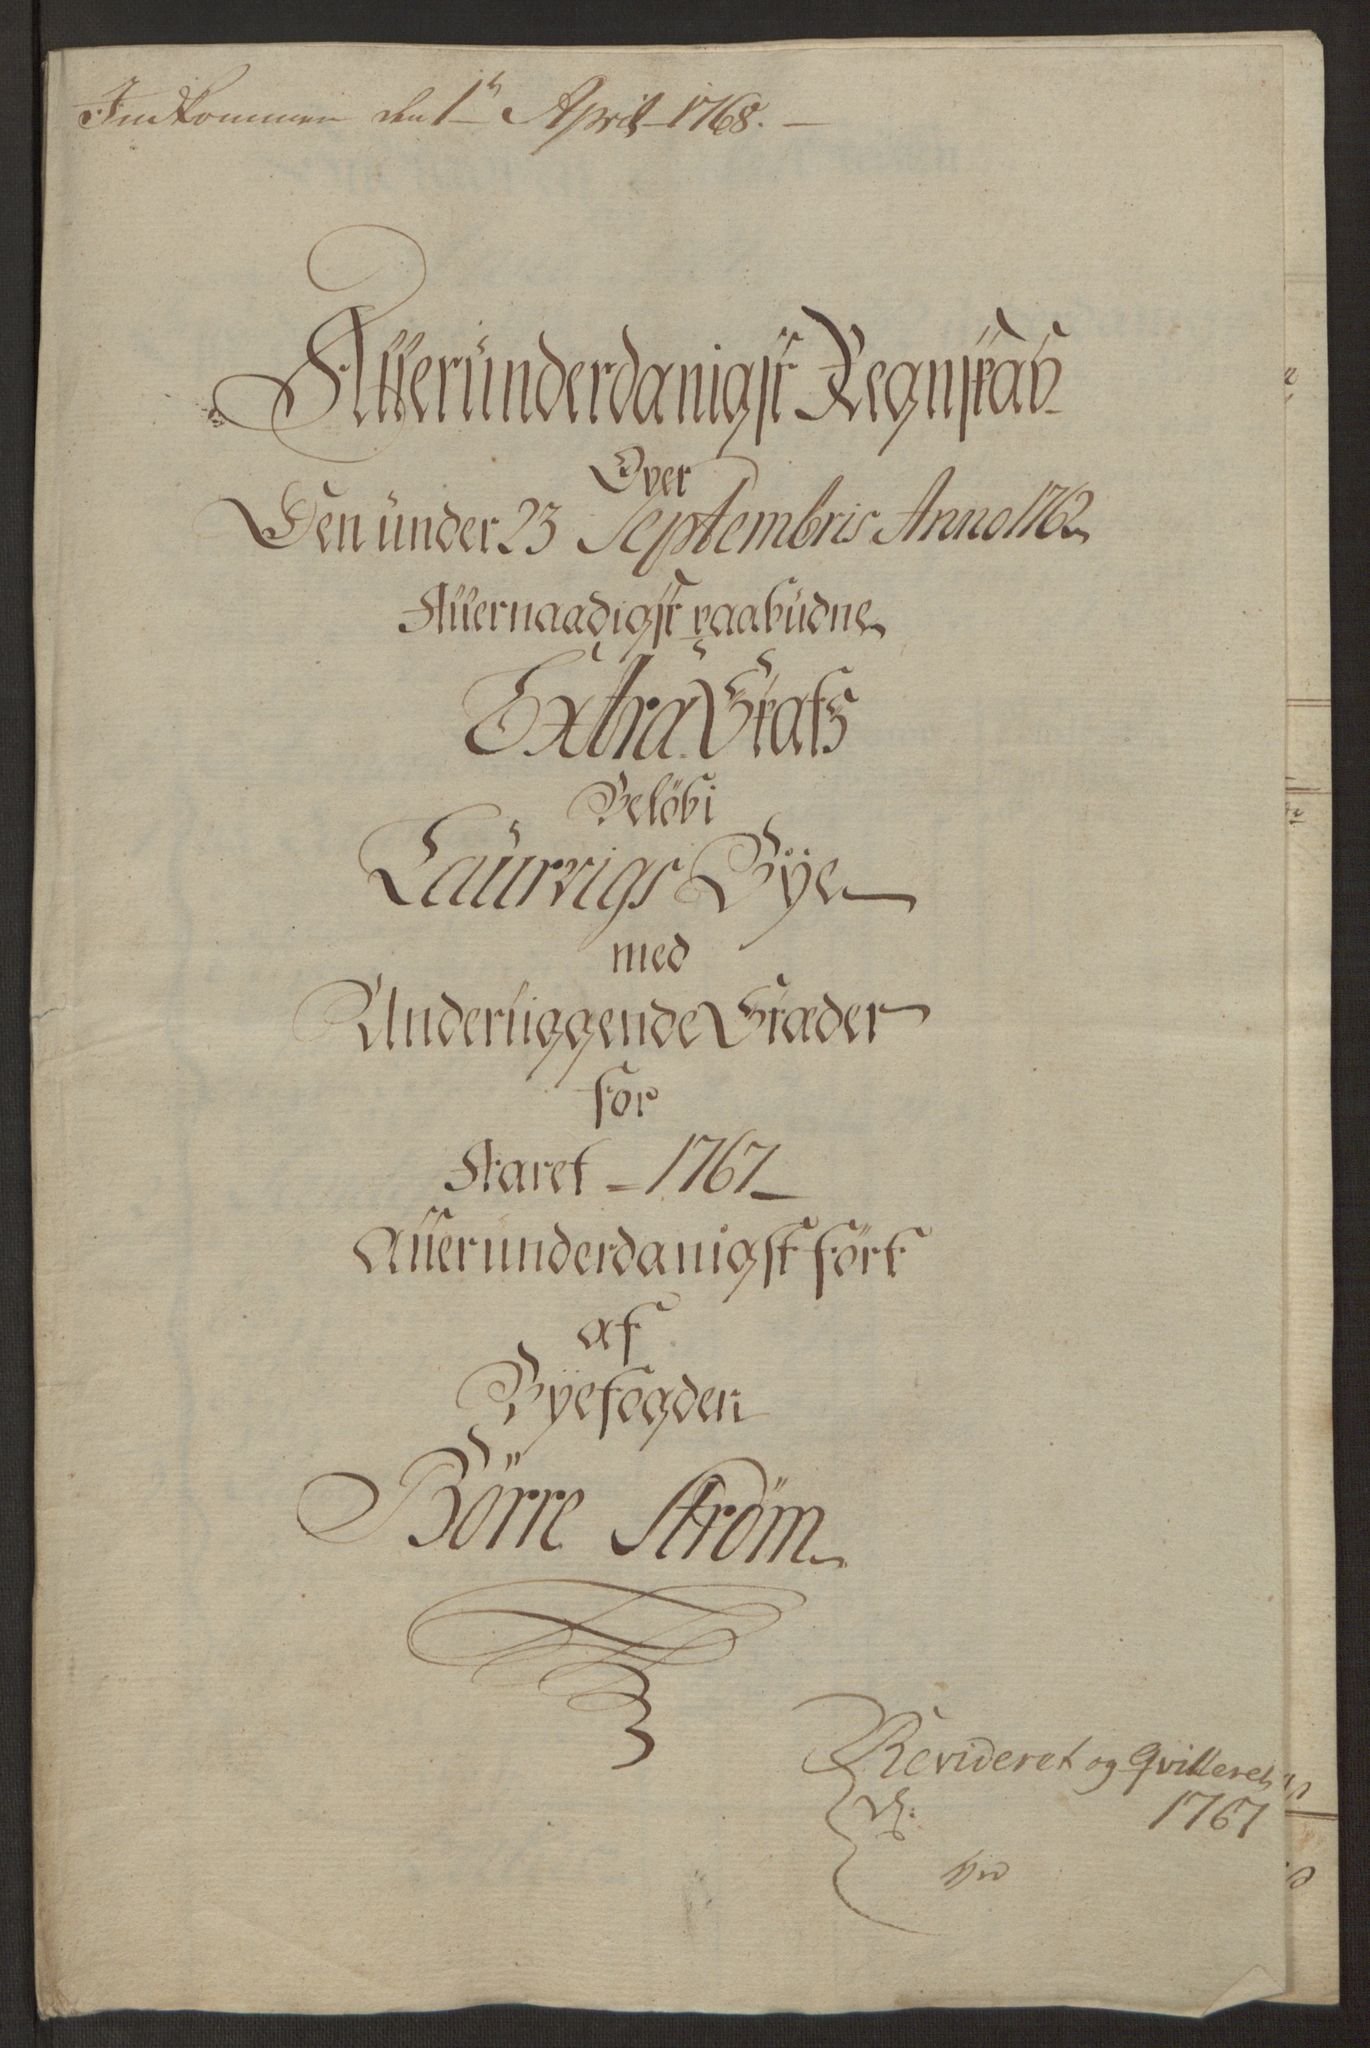 Indkommen den 1te April 1768.
Allerunderdanigst Regnskab
Over
Den under 23 Septembris Anno 1762
Allernaadigst paabudne
Extra Skats
Beløb i
Laurvigs Bÿe
med
Underliggende Stæder
for
Skaret 1767
Allerunderdanigst ført
af
Bÿefogden
Börre Ström
Revideret og Qvitteret
1767